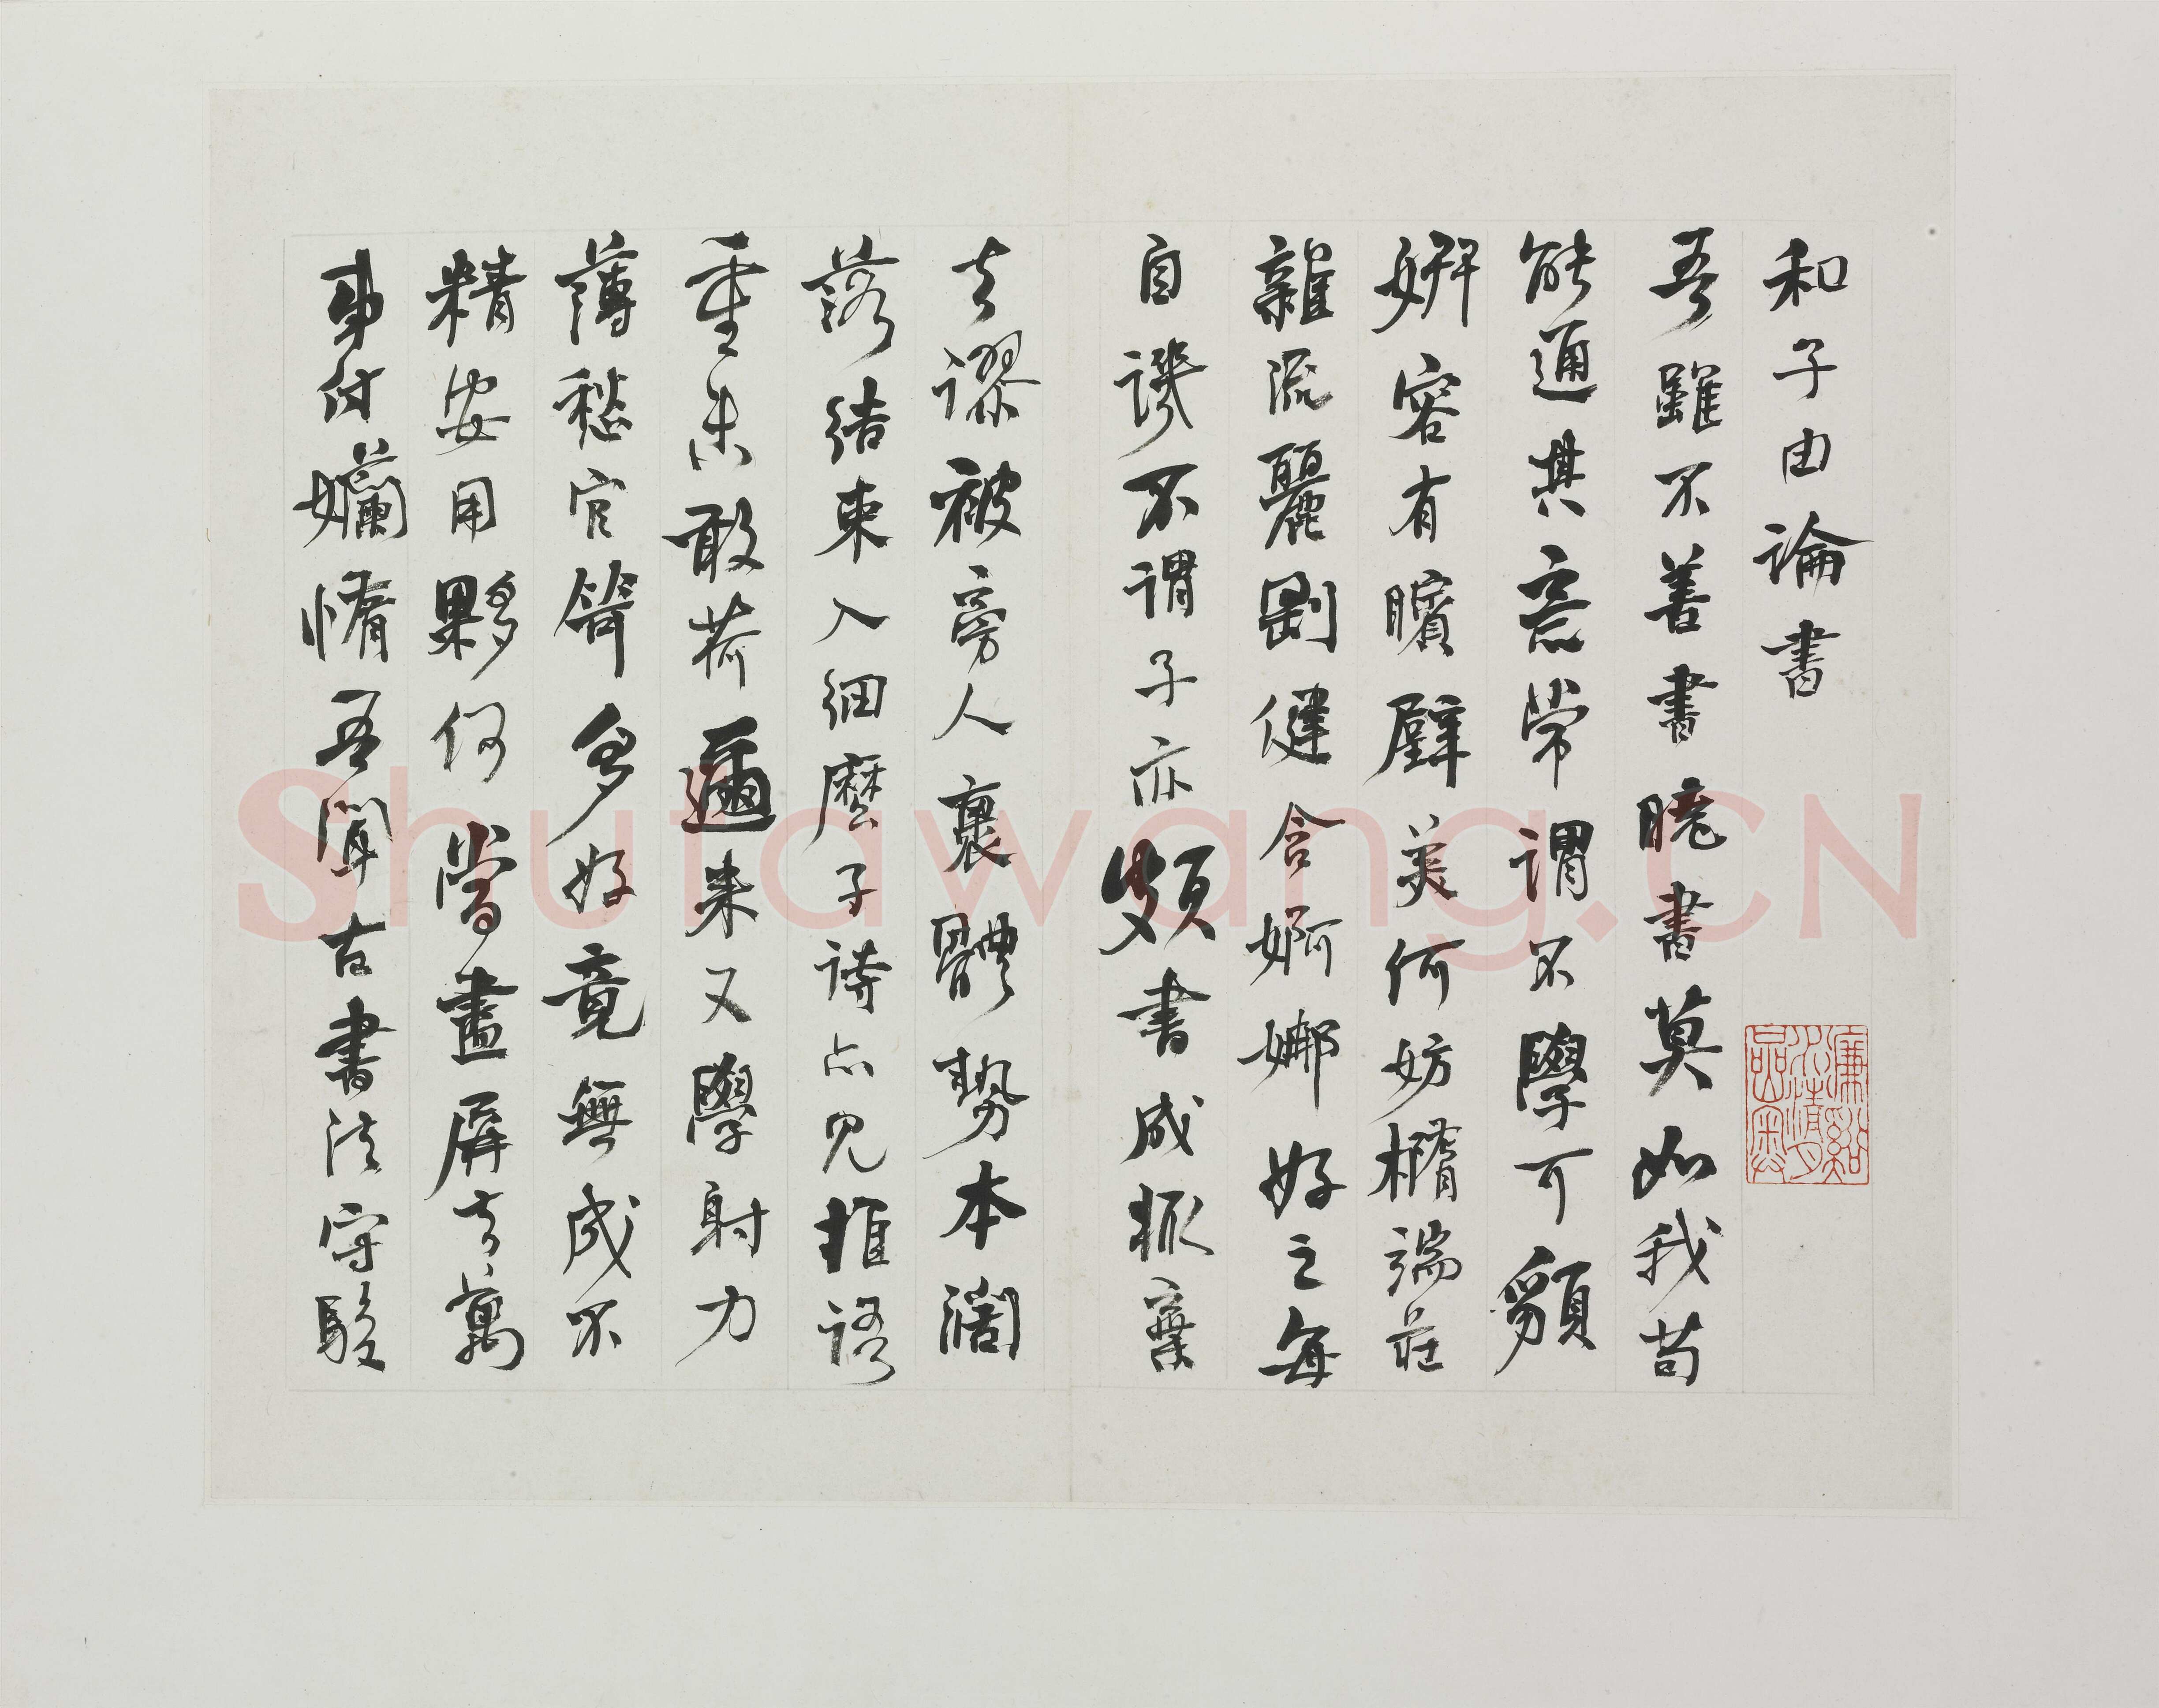 和子由論書
吾雖不善書曉書莫如我苟
能通其意常謂不學可貌
妍容有矉璧美何妨橢端莊
雜流麗剛健含婀娜好之每
自譏不謂子亦頗書成輒棄
去謬被旁人裹體勢本闊
落結束入細麼子詩亦見推語
重未敢荷邇來又學射力
薄愁官笴多好竟無成不
精安用夥何當盡屏去萬
事付嬾惰吾聞古書法守駿
Shufawang.CN